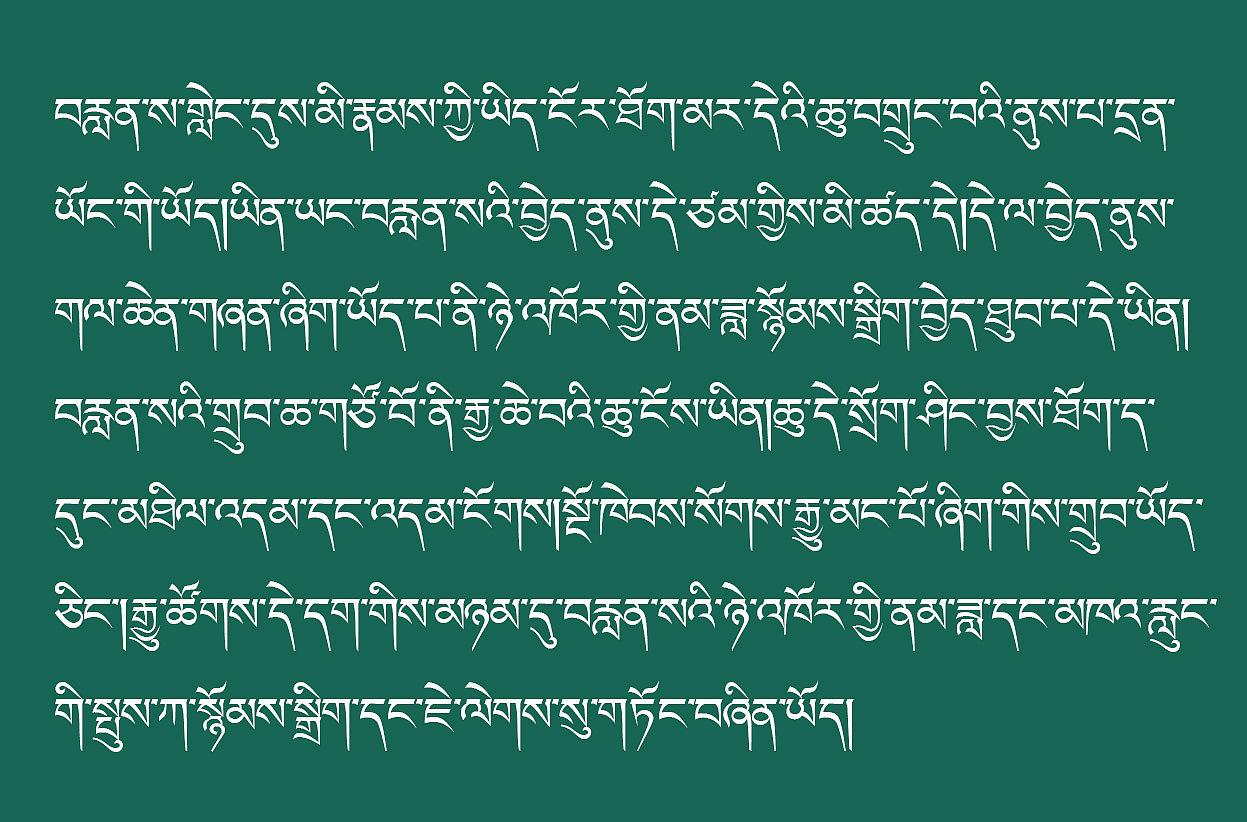 བརླན་ས་གླེང་དུས་མི་རྣམས་ཀྱི་ཡིད་ངོར་ཐོག་མར་དེའི་ཆུ་བགྲུང་བའི་ནུས་པ་དྲན་
ཡོང་གི་ཡོད།ཡིན་ཡང་བརླན་སའི་བྱེད་ནུས་དེ་ཙམ་གྱིས་མི་ཚད་དེ།དེ་ལ་བྱེད་ནུས་
གལ་ཆེན་གཞན་ཞིག་ཡོད་པ་ནི་ཉེ་འཁོར་གྱི་ནམ་ཟླ་སྙོམས་སྒྲིག་བྱེད་ཐུབ་པ་དེ་ཡིན།
བརླན་སའི་གྲུབ་ཆ་གཙོ་བོ་ནི་རྒྱ་ཆེ་བའི་ཆུ་ངོས་ཡིན།ཆུ་དེ་སྲོག་ཤིང་བྱས་ཐོག་ད་
དུང་མཐིལ་འདམ་དང་འདམ་ངོགས།སྔོ་ཁེབས་སོགས་རྒྱུ་མང་པོ་ཞིག་གིས་གྲུབ་ཡོད་
ཅིང་།རྒྱུ་ཚོགས་དེ་དག་གིས་མཉམ་དུ་བརླན་སའི་ཉེ་འཁོར་གྱི་ནམ་ཟླ་དང་མཁའ་རླུང་
གི་སྤུས་ཀ་སྙོམས་སྒྲིག་དང་ཇེ་ལེགས་སུ་གཏོང་བཞིན་ཡོད།